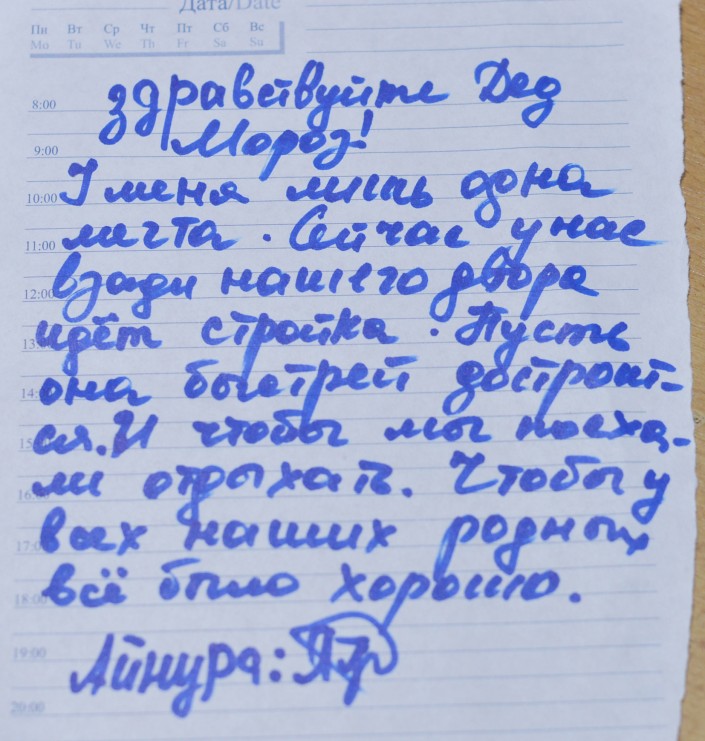 Дата/Date
Пн Вт Ср Чт Пт Сб Вс
Mo Tu We Th Fr Sa Su
8:00 здравствуйте Дед
9:00 Мороз!
10:00 У меня лишь одна
11:00 мечта. Сейчас у нас
12:00 взади нашего двора
13:00 идёт стройка. Пусть
14: она быстрей достроит-
15: ся. И чтобы мы поеха-
16:00 ли отдыхать. Чтобы у
17:00 всех наших родных
18:00 всё было хорошо.
19:00 Айнура:
20:00